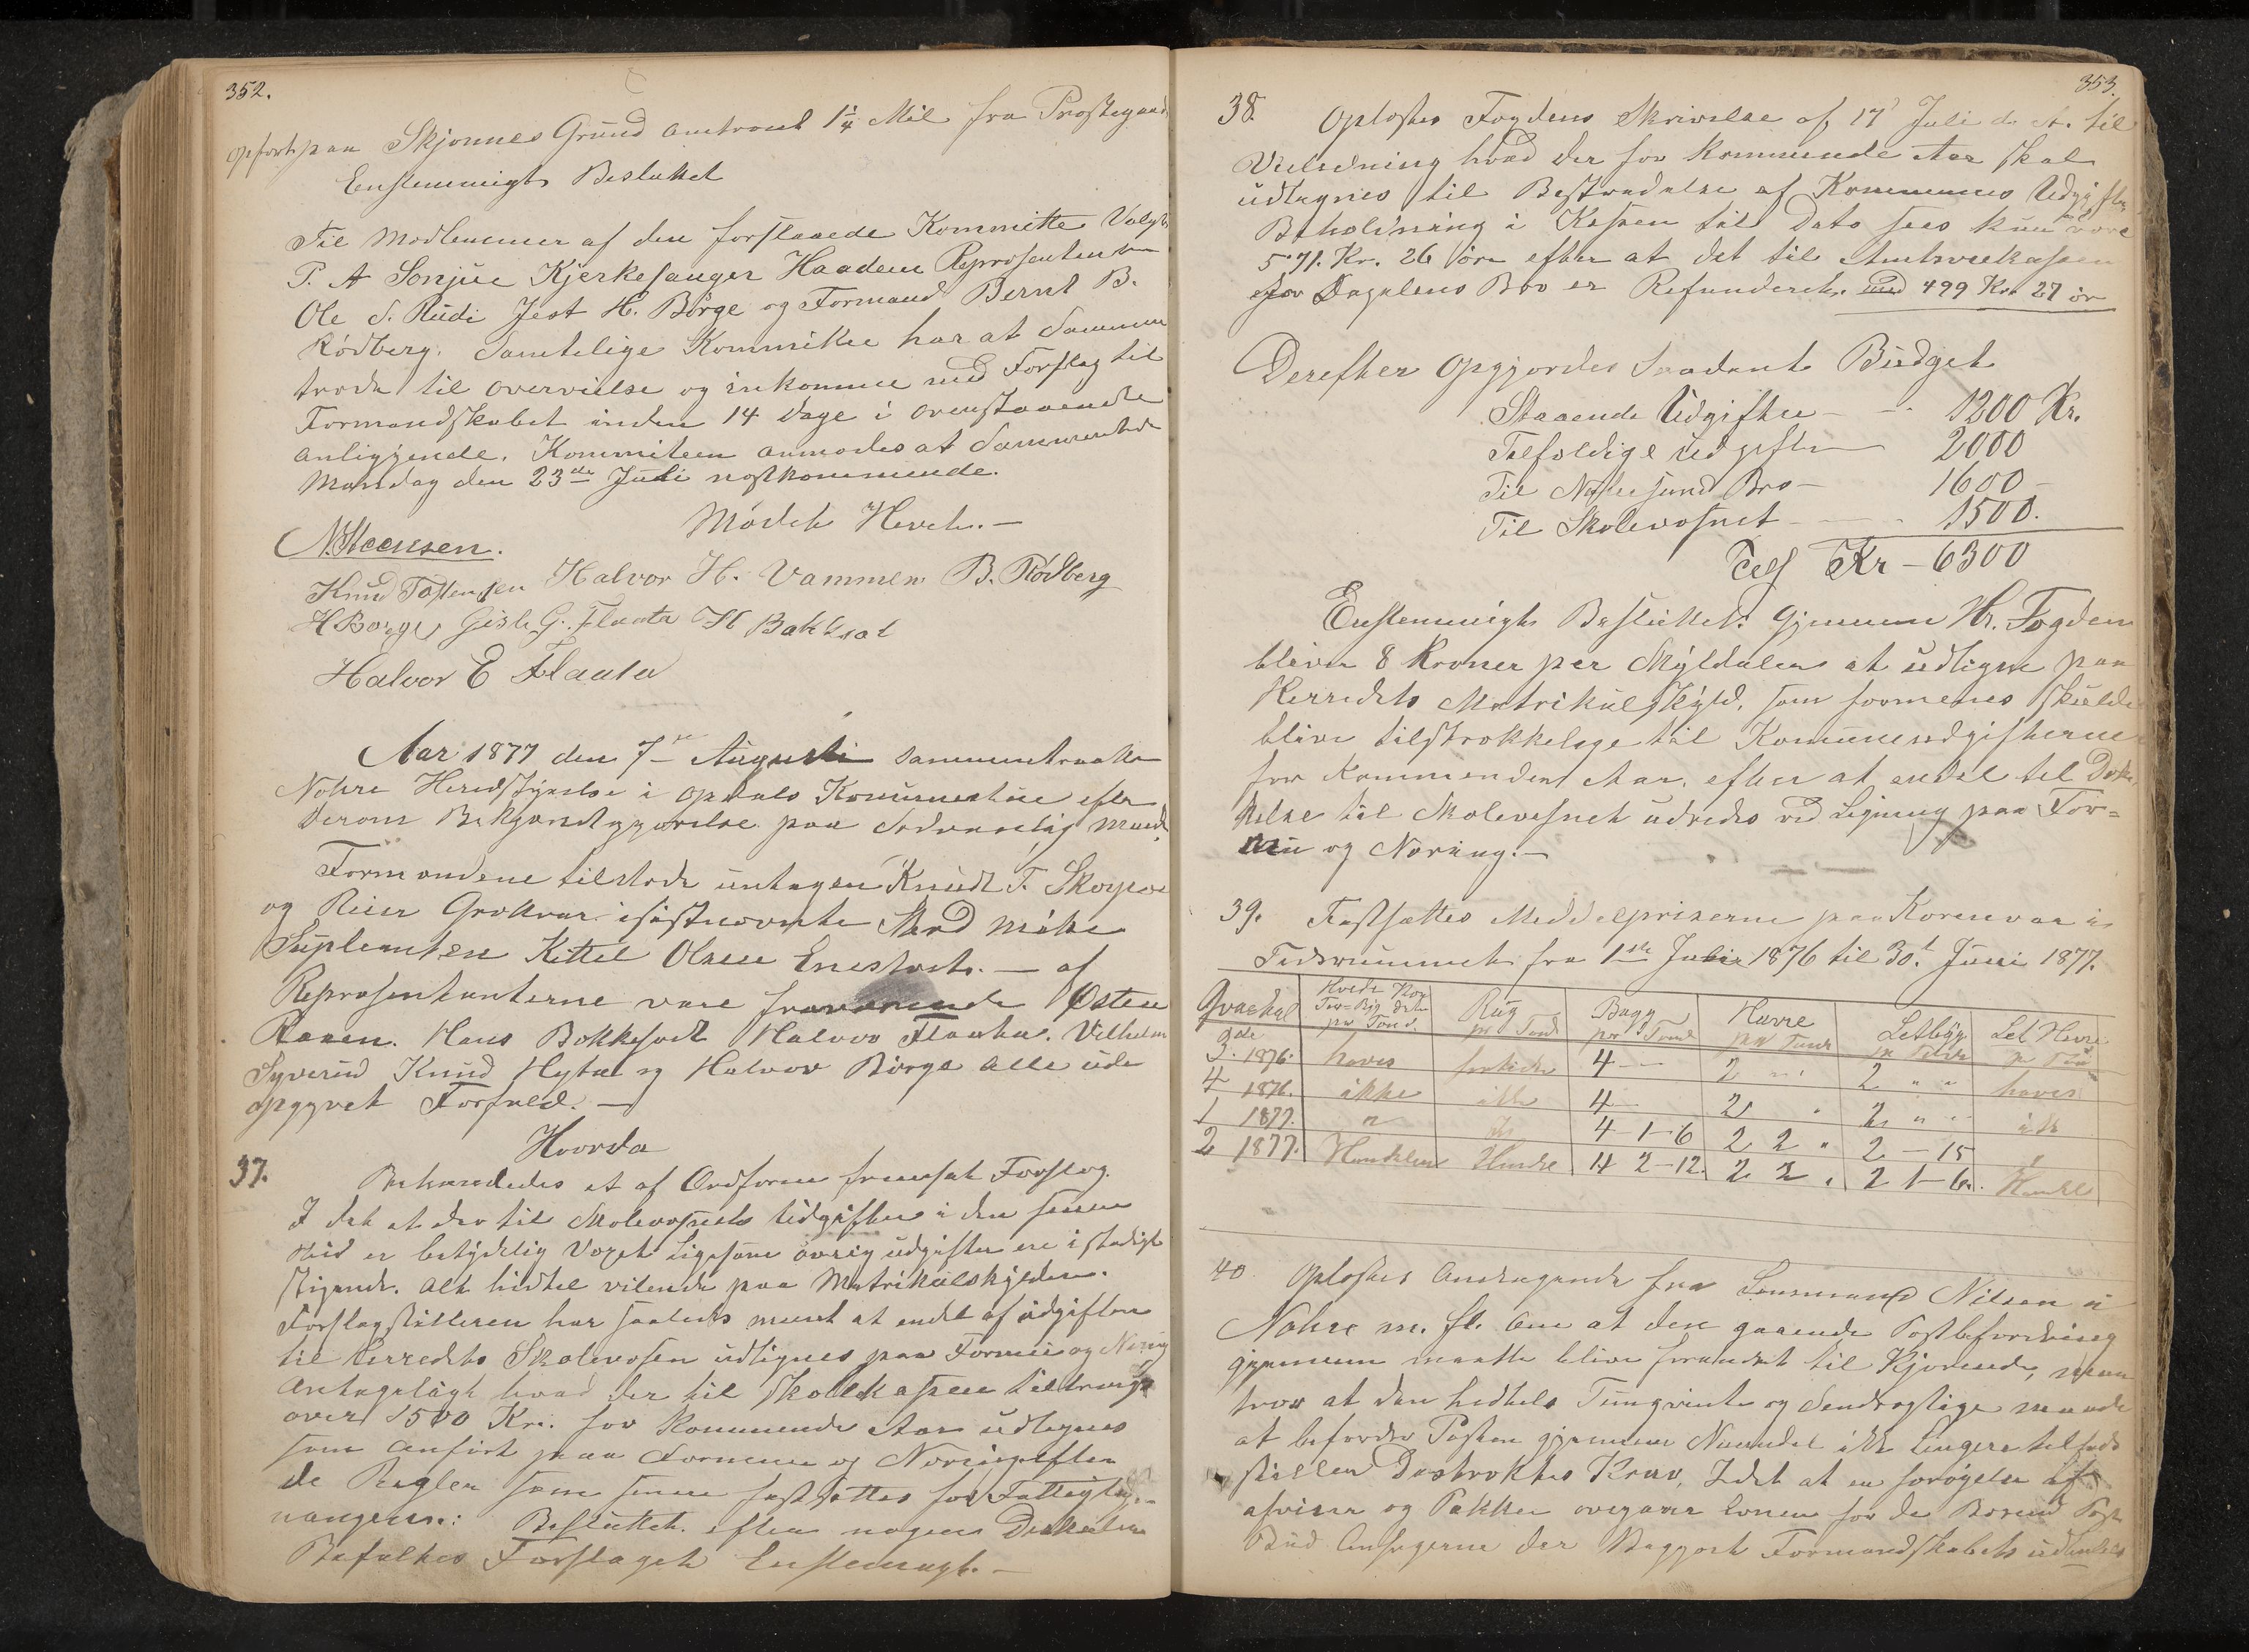 352.
opfort paa Skjønnes Grund omtrent 1 1/4 Mil fra Prestegaard
Enstemmigt Besluttet
Til Medlemmer af den forslaaede Kommitte Valgtes
P. A Sønjue Kjerkesanger Haadem Representenderne
Ole S. Rudi Jest H. Børge og Formand Bernt B.
Rødberg. Samtelige Kommitee har at Sammen
træde til overveielse og inkomme med Forslag til
Formandskabet inden 14 Dage i ovenstaaende
anliggende. Kommiteen anmodes at Sammentræde
Mandag den 23de Juli nestkommende.
Mødet Hævet. —
N. Steensen.
Knud Tostensen Halvor H. Vammen B. Rødberg
H Borge Gisle G. Flaata H Bakksat
Halvor E Flaata
Aar 1877 den 7de Augusti sammentraadte
Nohre Heredstyrelse i Opdals Komunestue efter
derom Bekjendtgjørelse paa Sedvanelig Maade
Formændene tilstede untagen Knudt T. Skorpen
og Reier Grøtterø. i sistnevnte Sted møtte
Suplenten Kittel Olsen Enestvedt. — af
Representanterne vare fraværende Østen
Raaen. Hans Bokkesodt Halvor Flaata. Vilhelm
Syverud Knud Hytta og Halvor Børge alle uden
opgyvet Forfald. —
Hvorda
37. Behandledes et af Ordføren fremsat Forslag.
I det at der til Skolevesnets Udgifter i den senere
tid er betydelig Voxet Ligesom øvrig udgifter ere i stadigt
stigende. Alt hidtil vilende paa Matrikulskylden.
Forslagstilleren har saaledes ment at endel af udgifter
til Herredets Skolevesen udlignes paa Formue og Næring
Antageligt hvad der til Skolekassen tiltrenges
over 1500 Kr. for kommende Aar udlignes
som anført paa Formue og Næring efter
de Regler som sinne fastsættes for Fattiglig-
nangen: Besluttet. efter nogen Diskution
Befaltes Forslaget Enstemmigt. —
353.
38. Oplæstes Fogdens Skrivelse af 17' Juli d. A. til
Veiledning hvad der for kommende Aar skal
udlignes til Bestridelse af Kommunens Udgifter
Beholdning i Kassen til Dato sees kun være
571. Kr. 26 øre efter at det til Amtsveikassen
for Dagalens Bro er Refunderet. med 499 Kr 27 ør
Derefter opgjordes Saadant Budget
Staaende Udgifter — 1200 Kr.
Tilfældige Udgifter 2000
Til Nohresund Bro — 1600 —
Til Skolevesnet — 1500.
Tils Kr — 6300
Enstemmigt Besluttet: Gjennem Hr. Fogden
bliver 8 Kroner per Skyldaler at udligne paa
Herredets Matrikulskyld, som formenes skulde
blive tilstrækkelige til Komuneudgifterne
for Kommenden Aar, efter at endel til Dæk-
kelse til Skolevesnet udredes ved Ligning paa For=
mu og Næring. —
39. Fastsattes Middelpriserne paa Kornvare i
Tidsrummet fra 1ste Juli 1876 til 30t Juni 1877.
Qvartal Hvede pr Tønd. Rug pr Tønd Bygg pr Tønde Havre pr Tønde Letbyg. pr Tønde Let Havre pr Tønde
3die 1876. haves 4 — 2 " 2 " "
4 1876. ikke ikke 4 — 2 " 2 " " haves
1 1877. " 4 1-6 2 2 " 2 — 15 ikke
2 1877. Handelen Handel 4 2-12. 2 2 . 2 1-6. Handel
40. Oplæstes Andragende fra Lensmand Nilsen i
Nohre m. fl. Om at den gaaende Postbefordring
gjennem maatte blive forandret til Kjørende, man
tror at den hidtels Tungvinte og Sendregtige maade
at befordre Posten gjennem Numedal ikke lengere tilfreds
stiller Destriktes Krav, Idet at en forøgelse af
aviser og Pakker overgaar Evnen for de Bærend Post
Bud Ansøgerne der Begjært Formandskabets udtalelse